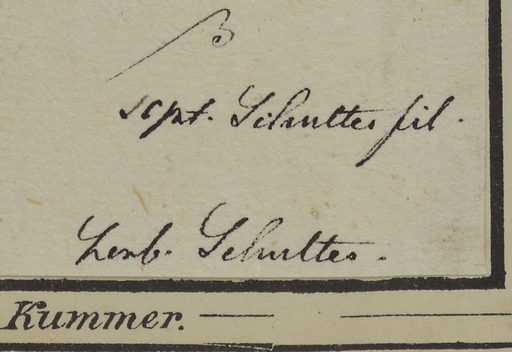 β
scpt. Schultes fil.
herb. Schultes.
Kummer.